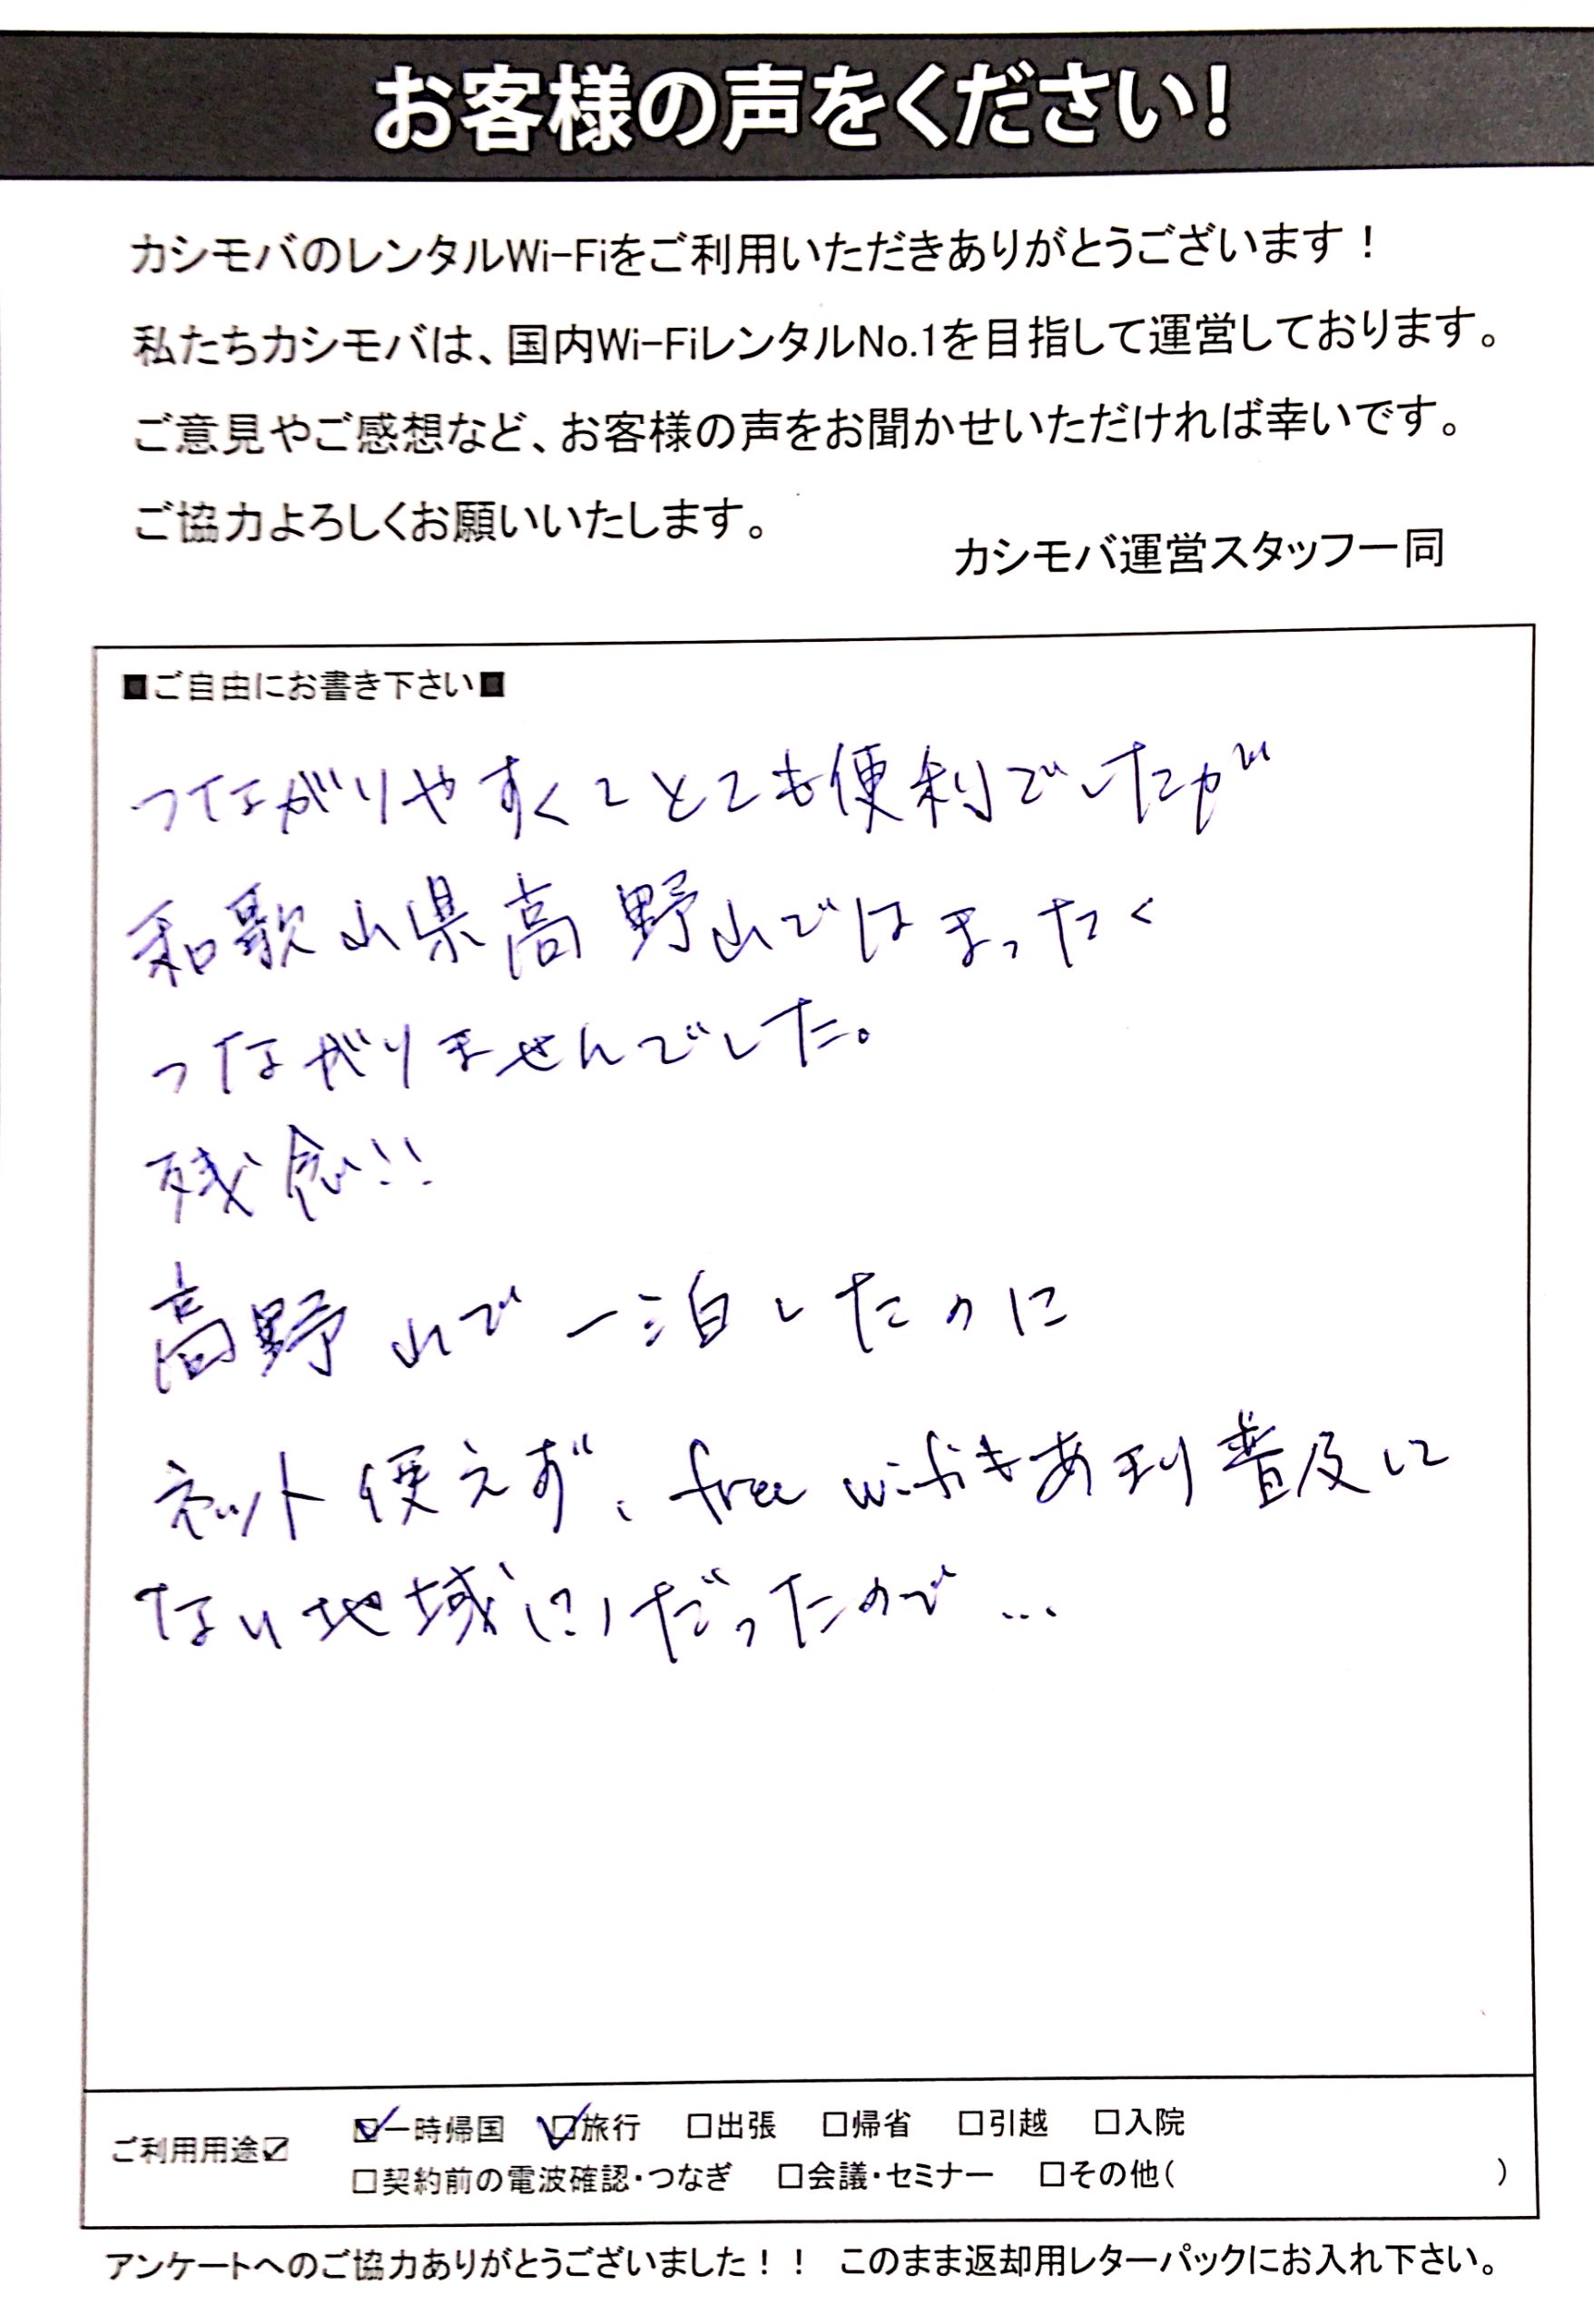 お客様の声をください!
カシモバのレンタルWi-Fiをご利用いただきありがとうございます！
私たちカシモバは、国内Wi-FiレンタルNo.1を目指して運営しております。
ご意見やご感想など、お客様の声をお聞かせいただければ幸いです。
ご協力よろしくお願いいたします。
カシモバ運営スタッフ一同
■ご自由にお書き下さい■
つながりやすくてとても便利でしたが
和歌山県高野山ではまったく
つながりませんでした。
残念!!
高野山で一泊したのに
ネット使えず、free wifiもあまり普及して
ない地域(?)だったので…
ご利用用途☑ ☑一時帰国 ☑旅行 □出張 □帰省 □引越 □入院
□契約前の電波確認・つなぎ □会議・セミナー □その他( )
アンケートへのご協力ありがとうございました！！ このまま返却用レターパックにお入れ下さい。